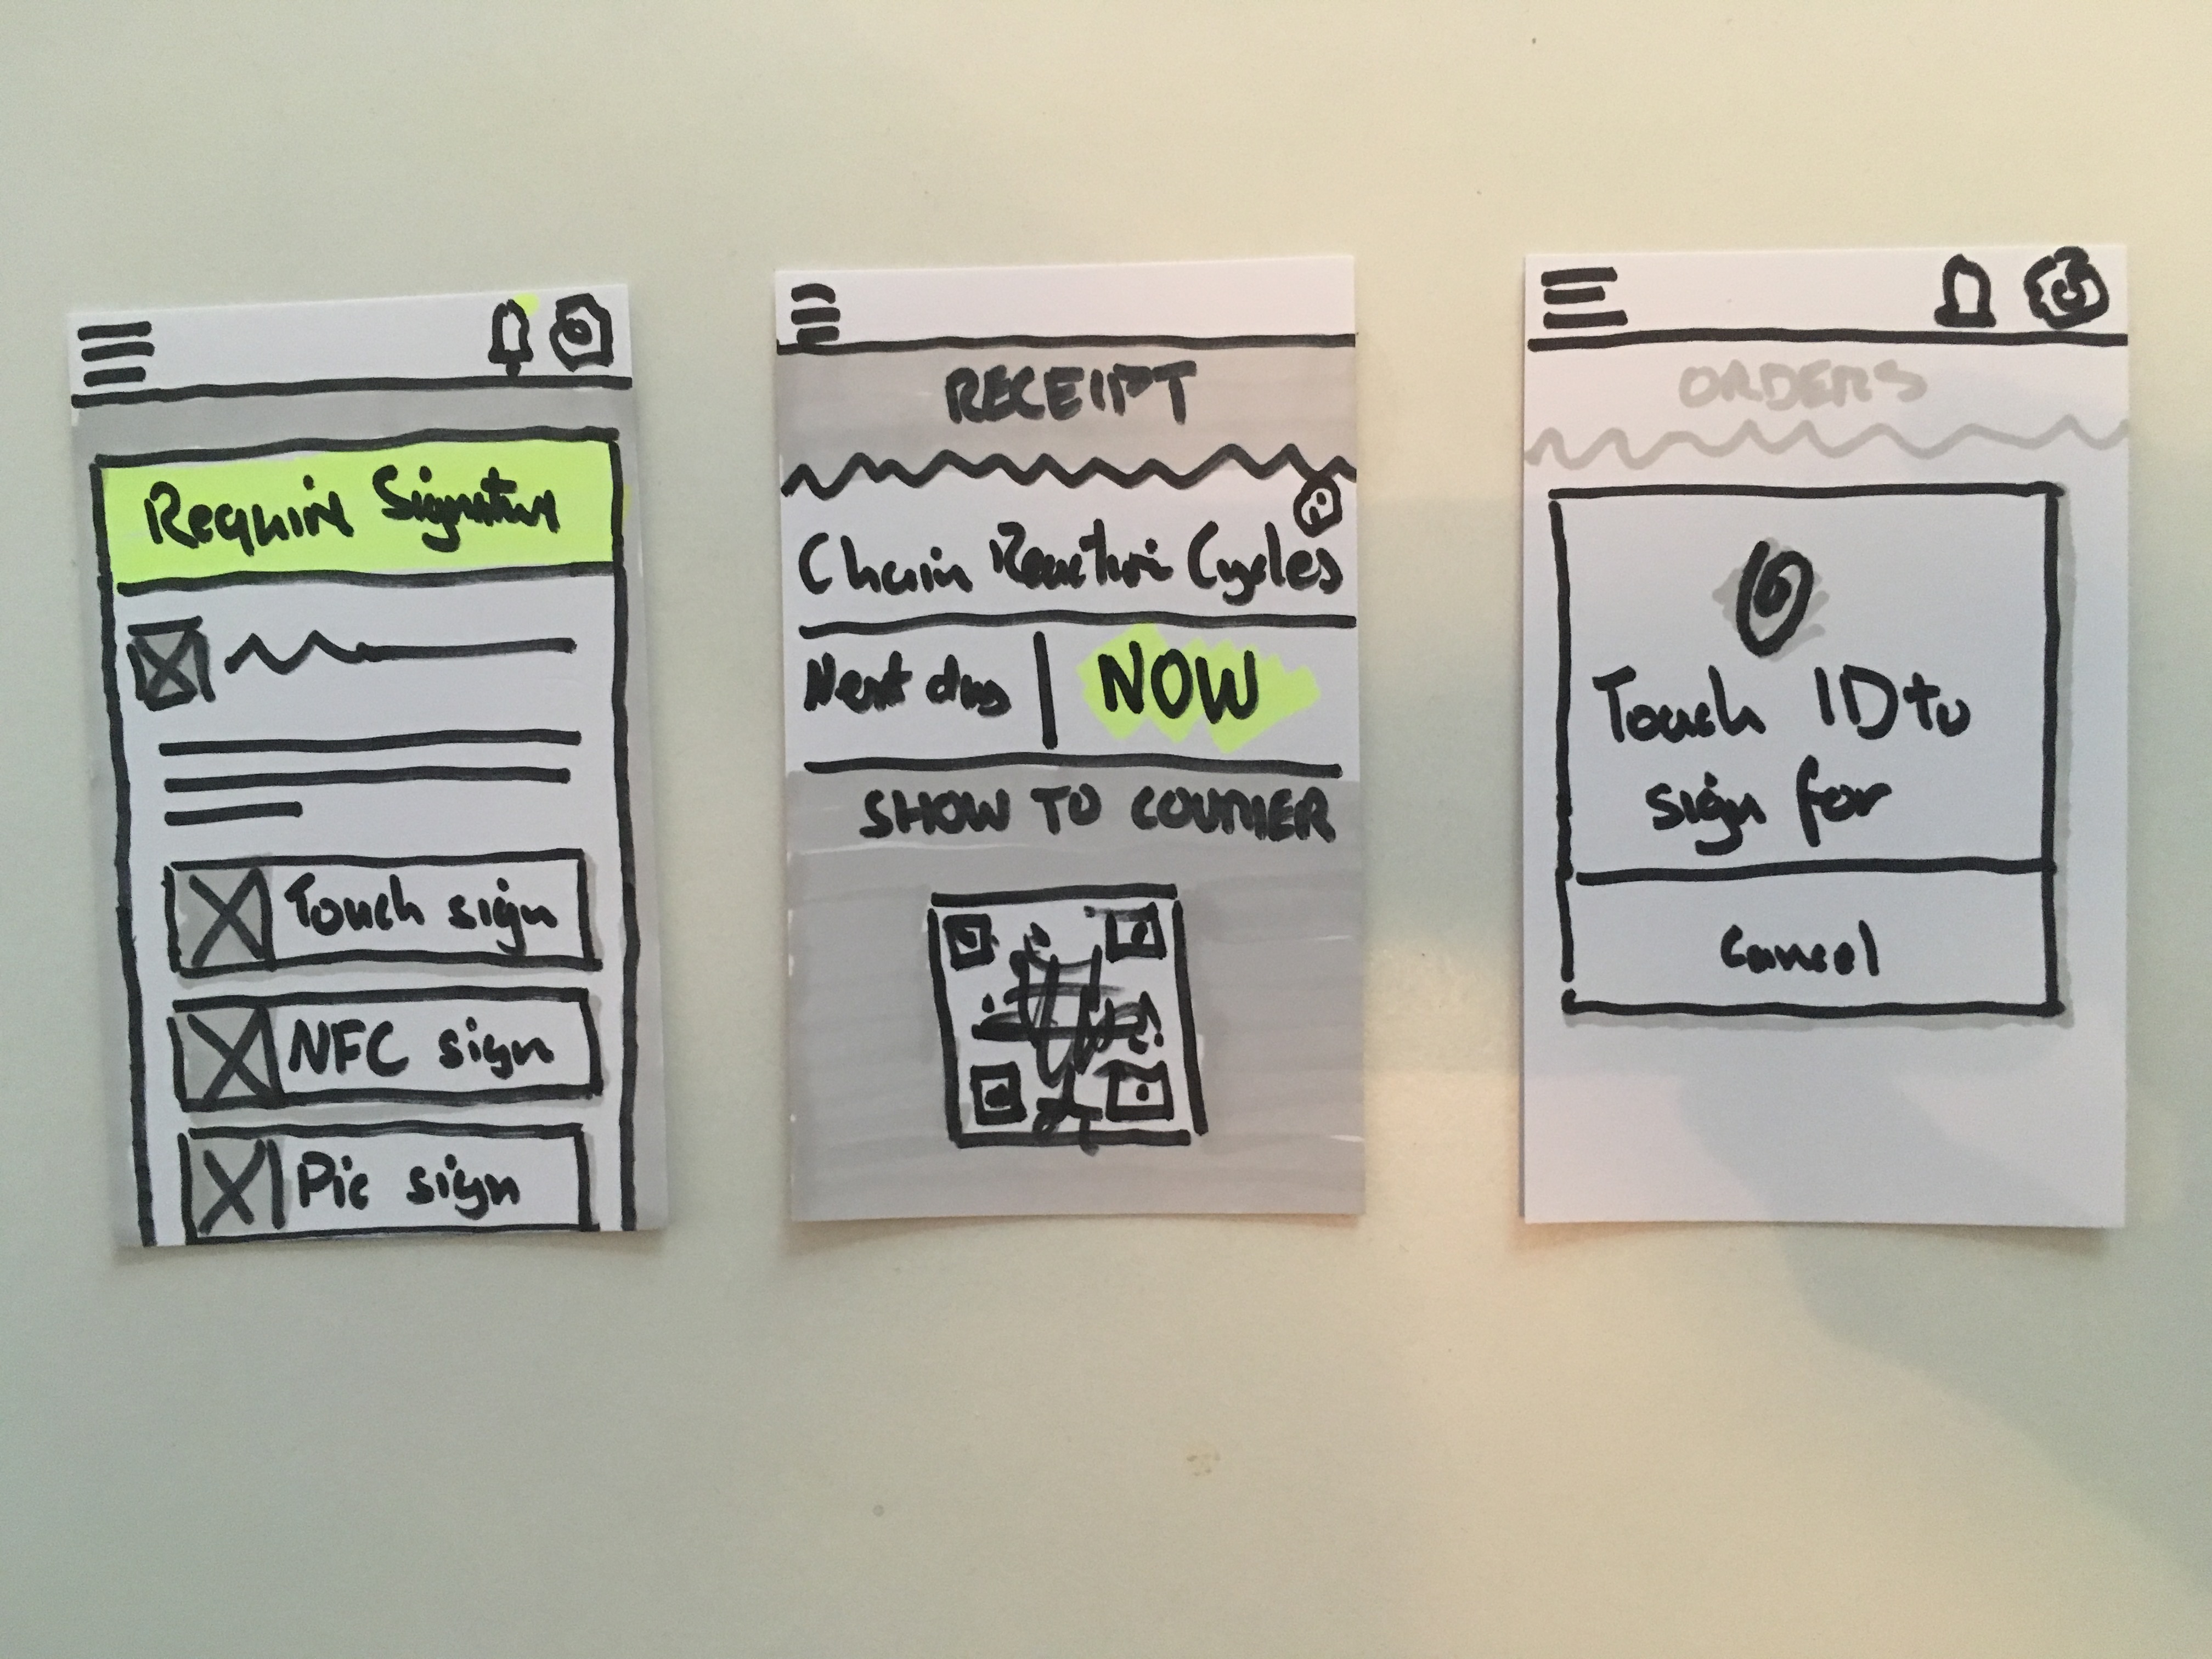 Require Signature
Touch sign
NFC sign
Pic sign
RECEIPT
Chain Reaction Cycles
Next day | NOW
SHOW TO COURIER
ORDERS
Touch ID to
sign for
Cancel